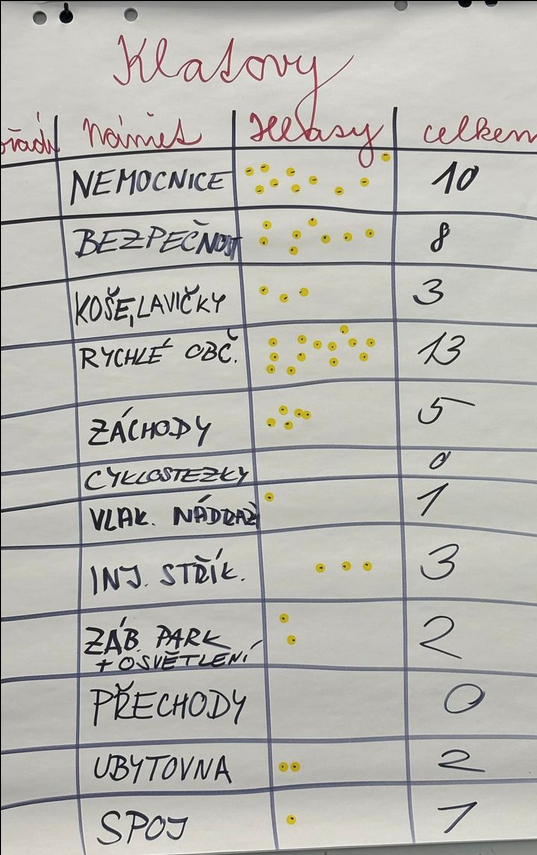 Klatovy
pořadí námět Hlasy celkem
NEMOCNICE 10
BEZPEČNOST 8
KOŠE, LAVIČKY 3
RYCHLÉ OBČ. 13
ZÁCHODY 5
CYKLOSTEZKY 0
VLAK. NÁDRAŽ 1
INJ. STŘÍK. 3
ZÁB. PARK 2
+ OSVĚTLENÍ
PŘECHODY 0
UBYTOVNA 2
SPOJ 1